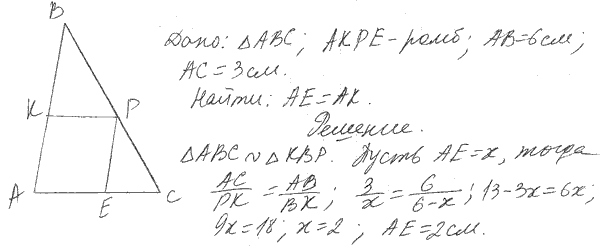 B
K
P
A
E
C
Дано: △ABC; AKPE - ромб; AB=6см;
AC=3см.
Найти: AE=AK.
Решение.
△ABC ∾ △KBP. Пусть AE=x, тогда
AC/PK = AB/BK; 3/x = 6/(6-x); 13-3x=6x;
9x=18; x=2; AE=2см.